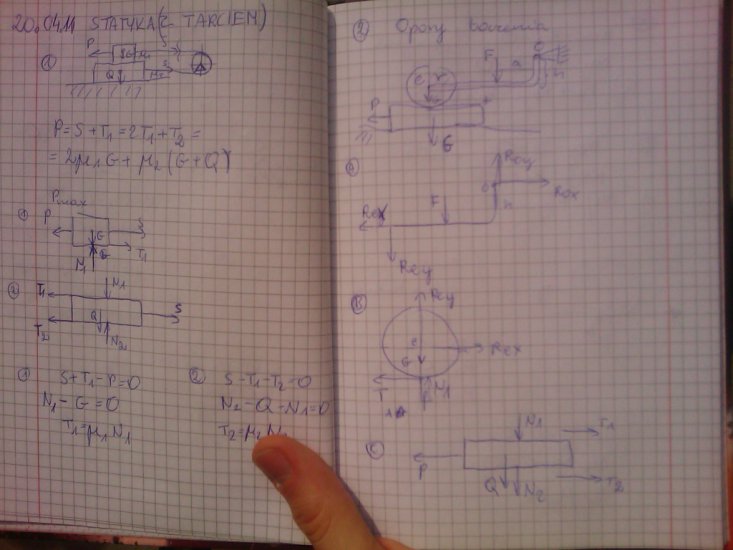 20.04.11 STATYKA (Z TARCIEM)
①
P S
G μ1
Q μ2
P = S + T1 = 2T1 + T2 =
= 2μ1G + μ2 (G + Q)
Pmax
①
P G S
N1 T1
②
T1 N1
Q S
T2 N2
① S + T1 - P = 0
N1 - G = 0
T1 = μ1 N1
② S - T1 - T2 = 0
N2 - Q - N1 = 0
T2 = μ2 N2
② Opory toczenia
F O
C r a h
P
G
Rey
O Rox
F h
Rcx
Rcy
Ⓑ Rcy
C
G Rcx
T N1
Ⓒ N1 T1
P
Q N2 T2